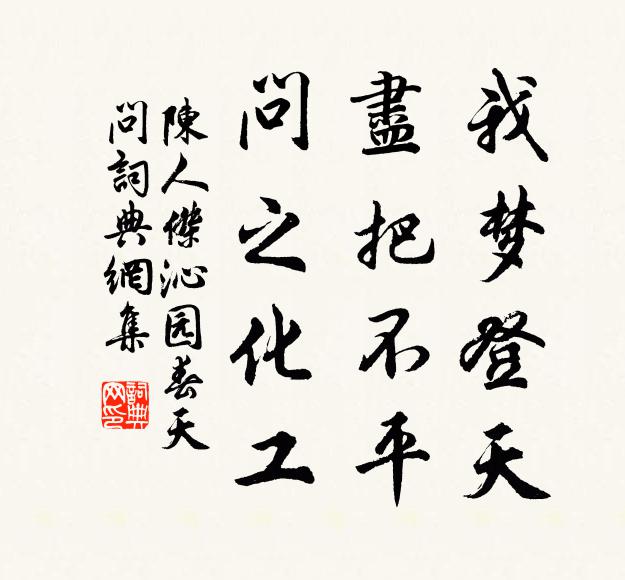 我梦登天
盡把不平
問之化工
陳人傑沁园春天
問詞典網集
詞典
网印